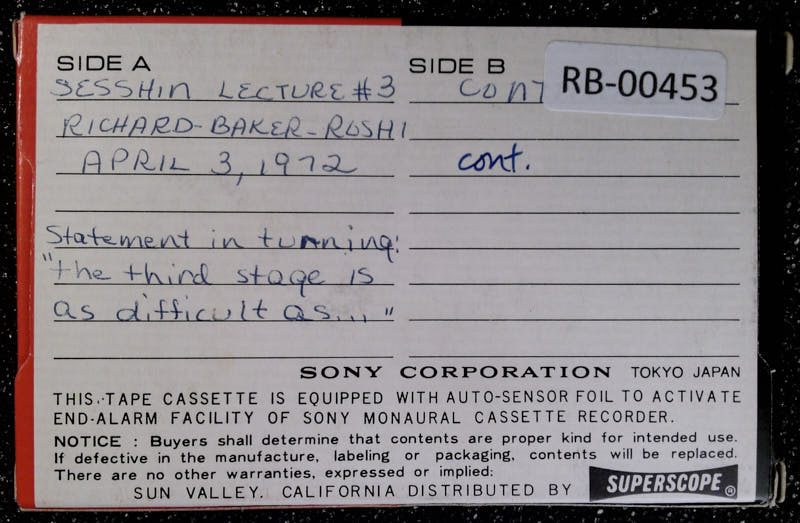 SIDE A
SESSHIN LECTURE #3
RICHARD-BAKER-ROSHI
APRIL 3, 1972
Statement in turning:
"the third stage is
as difficult as..."
SIDE B
CONT
RB-00453
cont.
SONY CORPORATION TOKYO JAPAN
THIS TAPE CASSETTE IS EQUIPPED WITH AUTO-SENSOR FOIL TO ACTIVATE
END-ALARM FACILITY OF SONY MONAURAL CASSETTE RECORDER.
NOTICE : Buyers shall determine that contents are proper kind for intended use.
If defective in the manufacture, labeling or packaging, contents will be replaced.
There are no other warranties, expressed or implied:
SUN VALLEY. CALIFORNIA DISTRIBUTED BY SUPERSCOPE®